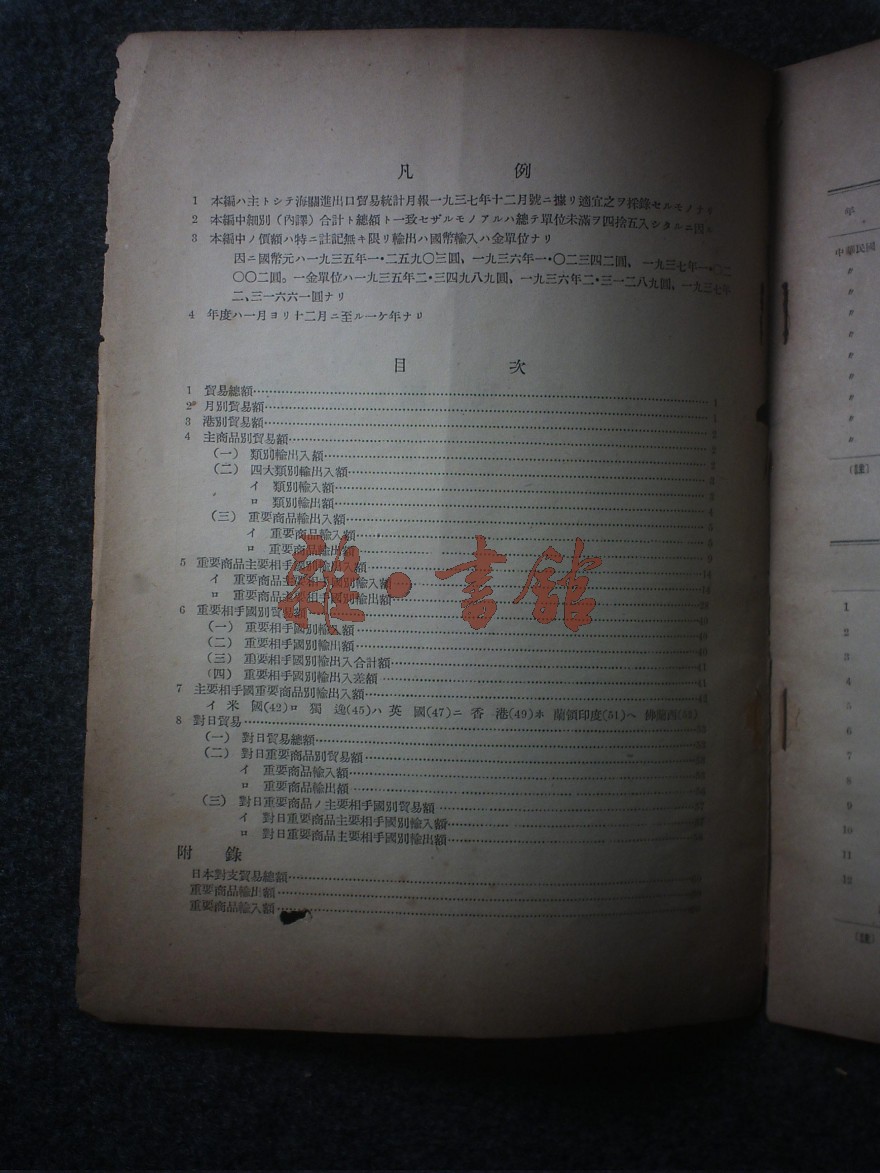 凡　例
1 本編ハ主トシテ海關進出口貿易統計月報一九三七年十二月號ニ據リ適宜之ヲ採錄セルモノナリ
2 本編中細別(內譯)合計ト總額ト一致セザルモノアルハ總テ單位未滿ヲ四捨五入シタルニ因ル
3 本編中ノ價額ハ特ニ註記無キ限リ輸出ハ國幣輸入ハ金單位ナリ
因ニ國幣元ハ一九三五年一・二五九〇三圓, 一九三六年一・〇二三四二圓, 一九三七年一・
〇〇二圓。一金單位ハ一九三五年二・三四九八九圓, 一九三六年二・三一二八九圓, 一九三七年
二、三一六六一圓ナリ
4 年度ハ一月ヨリ十二月ニ至ル一ケ年ナリ
目　次
1 貿易總額
2 月別貿易額
3 港別貿易額
4 主商品別貿易額
(一) 類別輸出入額
(二) 四大類別輸出入額
イ 類別輸入額
ロ 類別輸出額
(三) 重要商品輸出入額
イ 重要商品輸入額
ロ 重要商品輸出額
5 重要商品主要相手國別輸出入額
イ 重要商品主要相手國別輸入額
ロ 重要商品主要相手國別輸出額
6 重要相手國別貿易額
(一) 重要相手國別輸入額
(二) 重要相手國別輸出額
(三) 重要相手國別輸出入合計額
(四) 重要相手國別輸出入差額
7 主要相手國重要商品別輸出入額
イ 米 國(42)ロ 獨 逸(45)ハ 英 國(47)ニ 香 港(49)ホ 蘭領印度(51)ヘ 佛蘭西
8 對日貿易
(一) 對日貿易總額
(二) 對日重要商品別貿易額
イ 重要商品輸入額
ロ 重要商品輸出額
(三) 對日重要商品ノ主要相手國別貿易額
イ 對日重要商品主要相手國別輸入額
ロ 對日重要商品主要相手國別輸出額
附　錄
日本對支貿易總額
重要商品輸出額
重要商品輸入額
雜・書館
年
中華民國
〃
〃
〃
〃
〃
〃
〃
〃
(註)
1
2
3
4
5
6
7
8
9
10
11
12
(註)